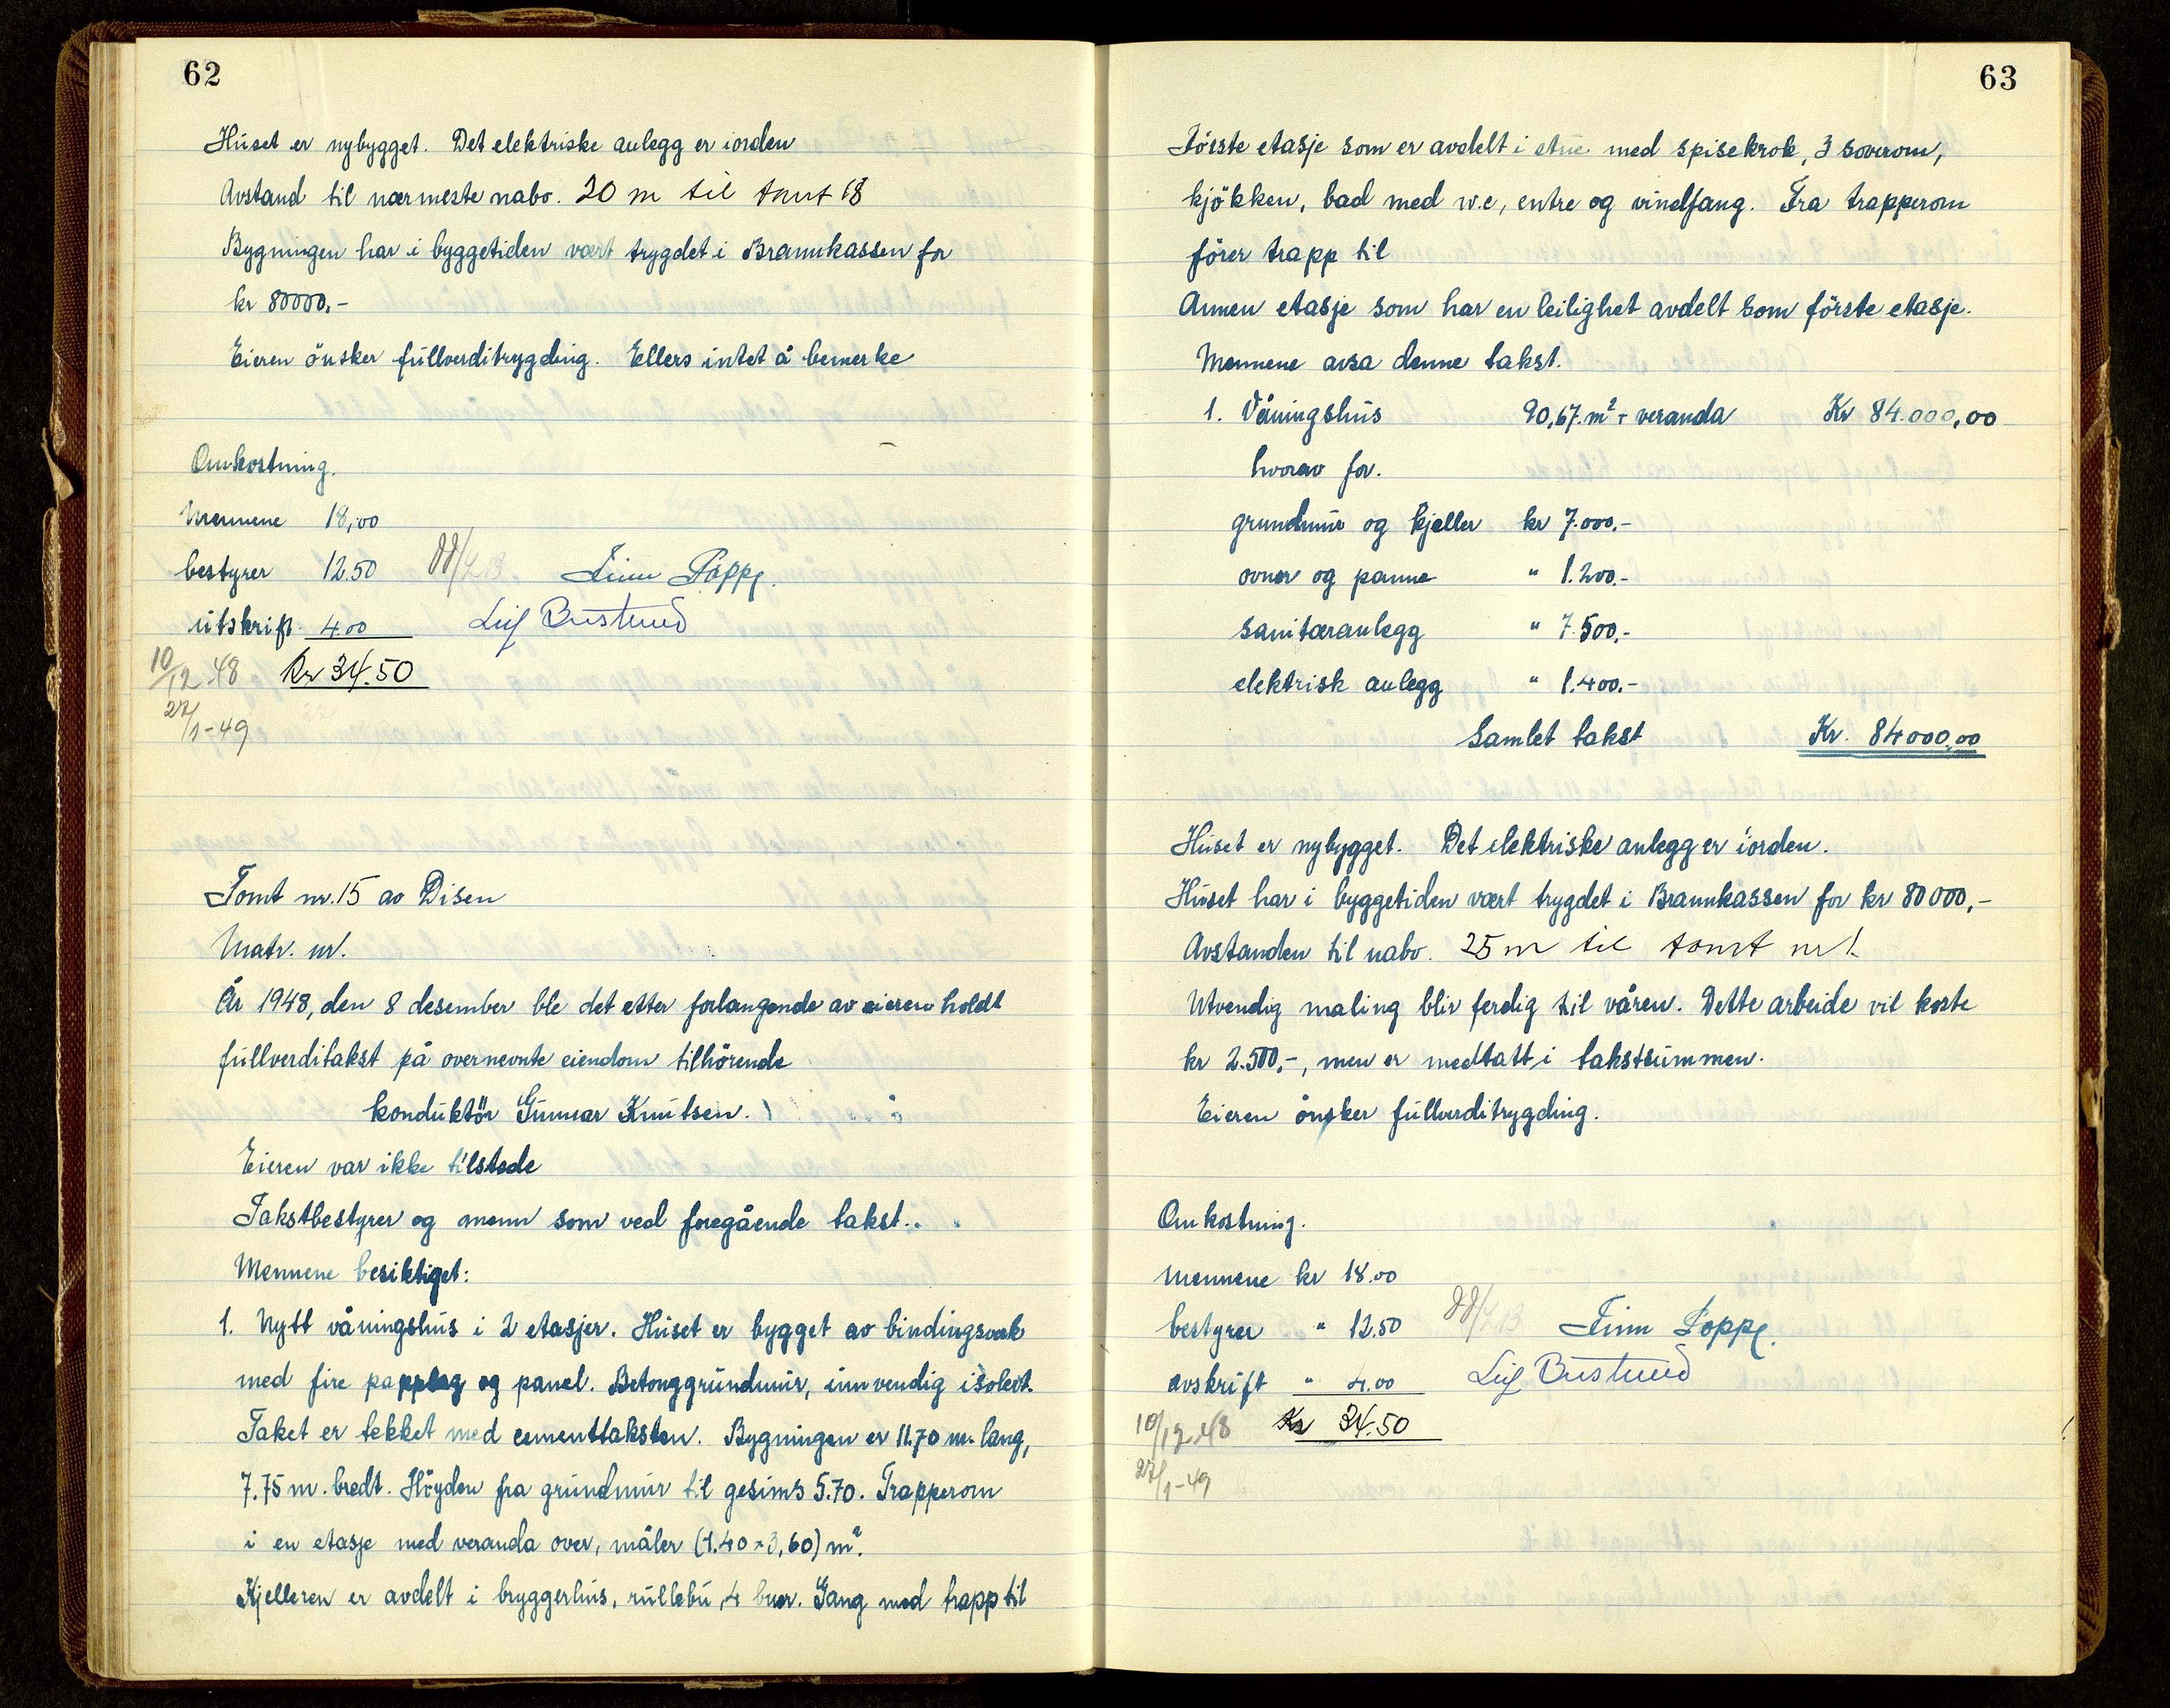 62
Huset er nybygget. Det elektriske anlegg er iorden
Avstand til nærmeste nabo. 20 m til tomt 18
Bygningen har i byggetiden vært trygdet i Brannkassen for
kr 80000,-
Eieren önsker fullverditrygding. Ellers intet å bemerke
Omkostning.
Mennene 18,00
bestyrer 12.50 Finn Poppe.
utskrift 4.00 Leif
10/12-48 Kr 34.50
27/1-49
Tomt nr. 15 av Disen
Matr. nr.
År 1948, den 8 desember ble det etter forlangende av eieren holdt
fullverditakst på overnevnte eiendom tilhörende
konduktör Gunnar Knutsen.
Eieren var ikke tilstede
Takstbestyrer og menn som ved foregående takst.
Mennene besiktiget:
1. Nytt våningshus i 2 etasjer. Huset er bygget av bindingsverk
med fire papplag og panel. Betonggrundmur, innvendig isolert.
Taket er tekket med cementtaksten. Bygningen er 11.70 m. lang,
7.75 m. bredt. Höyden fra grundmur til gesims 5.70. Trapperom
i en etasje med veranda over, måler (1.40 × 3,60) m².
Kjelleren er avdelt i bryggerhus, rullebu, 4 buer. Gang med trapp til
63
Förste etasje som er avdelt i stue med spisekrok, 3 soverom,
kjökken, bad med w.c, entre og vindfang. Fra trapperom
förer trapp til
Annen etasje som har en leilighet avdelt som förste etasje.
Mennene avsa denne takst.
1. Våningshus 90,67 m² + veranda Kr 84.000,00
hvorav for.
grundmur og kjeller kr 7.000.-
ovner og panne " 1.200.-
sanitæranlegg " 7.500,-
elektrisk anlegg " 1.400.-
Samlet takst Kr. 84000,00
Huset er nybygget. Det elektriske anlegg er iorden.
Huset har i byggetiden vært trygdet i Brannkassen for kr 80000,-
Avstanden til nabo. 25 m til tomt nr 1.
Utvendig maling blir ferdig til våren. Dette arbeide vil koste
kr 2.500,-, men er medtatt i takstsummen.
Eieren önsker fullverditrygding.
Omkostning.
mennene kr 18.00
bestyrer " 12.50 Finn Poppe.
avskrift " 4.00 Leif
10/12-48 Kr 34.50
27/1-49